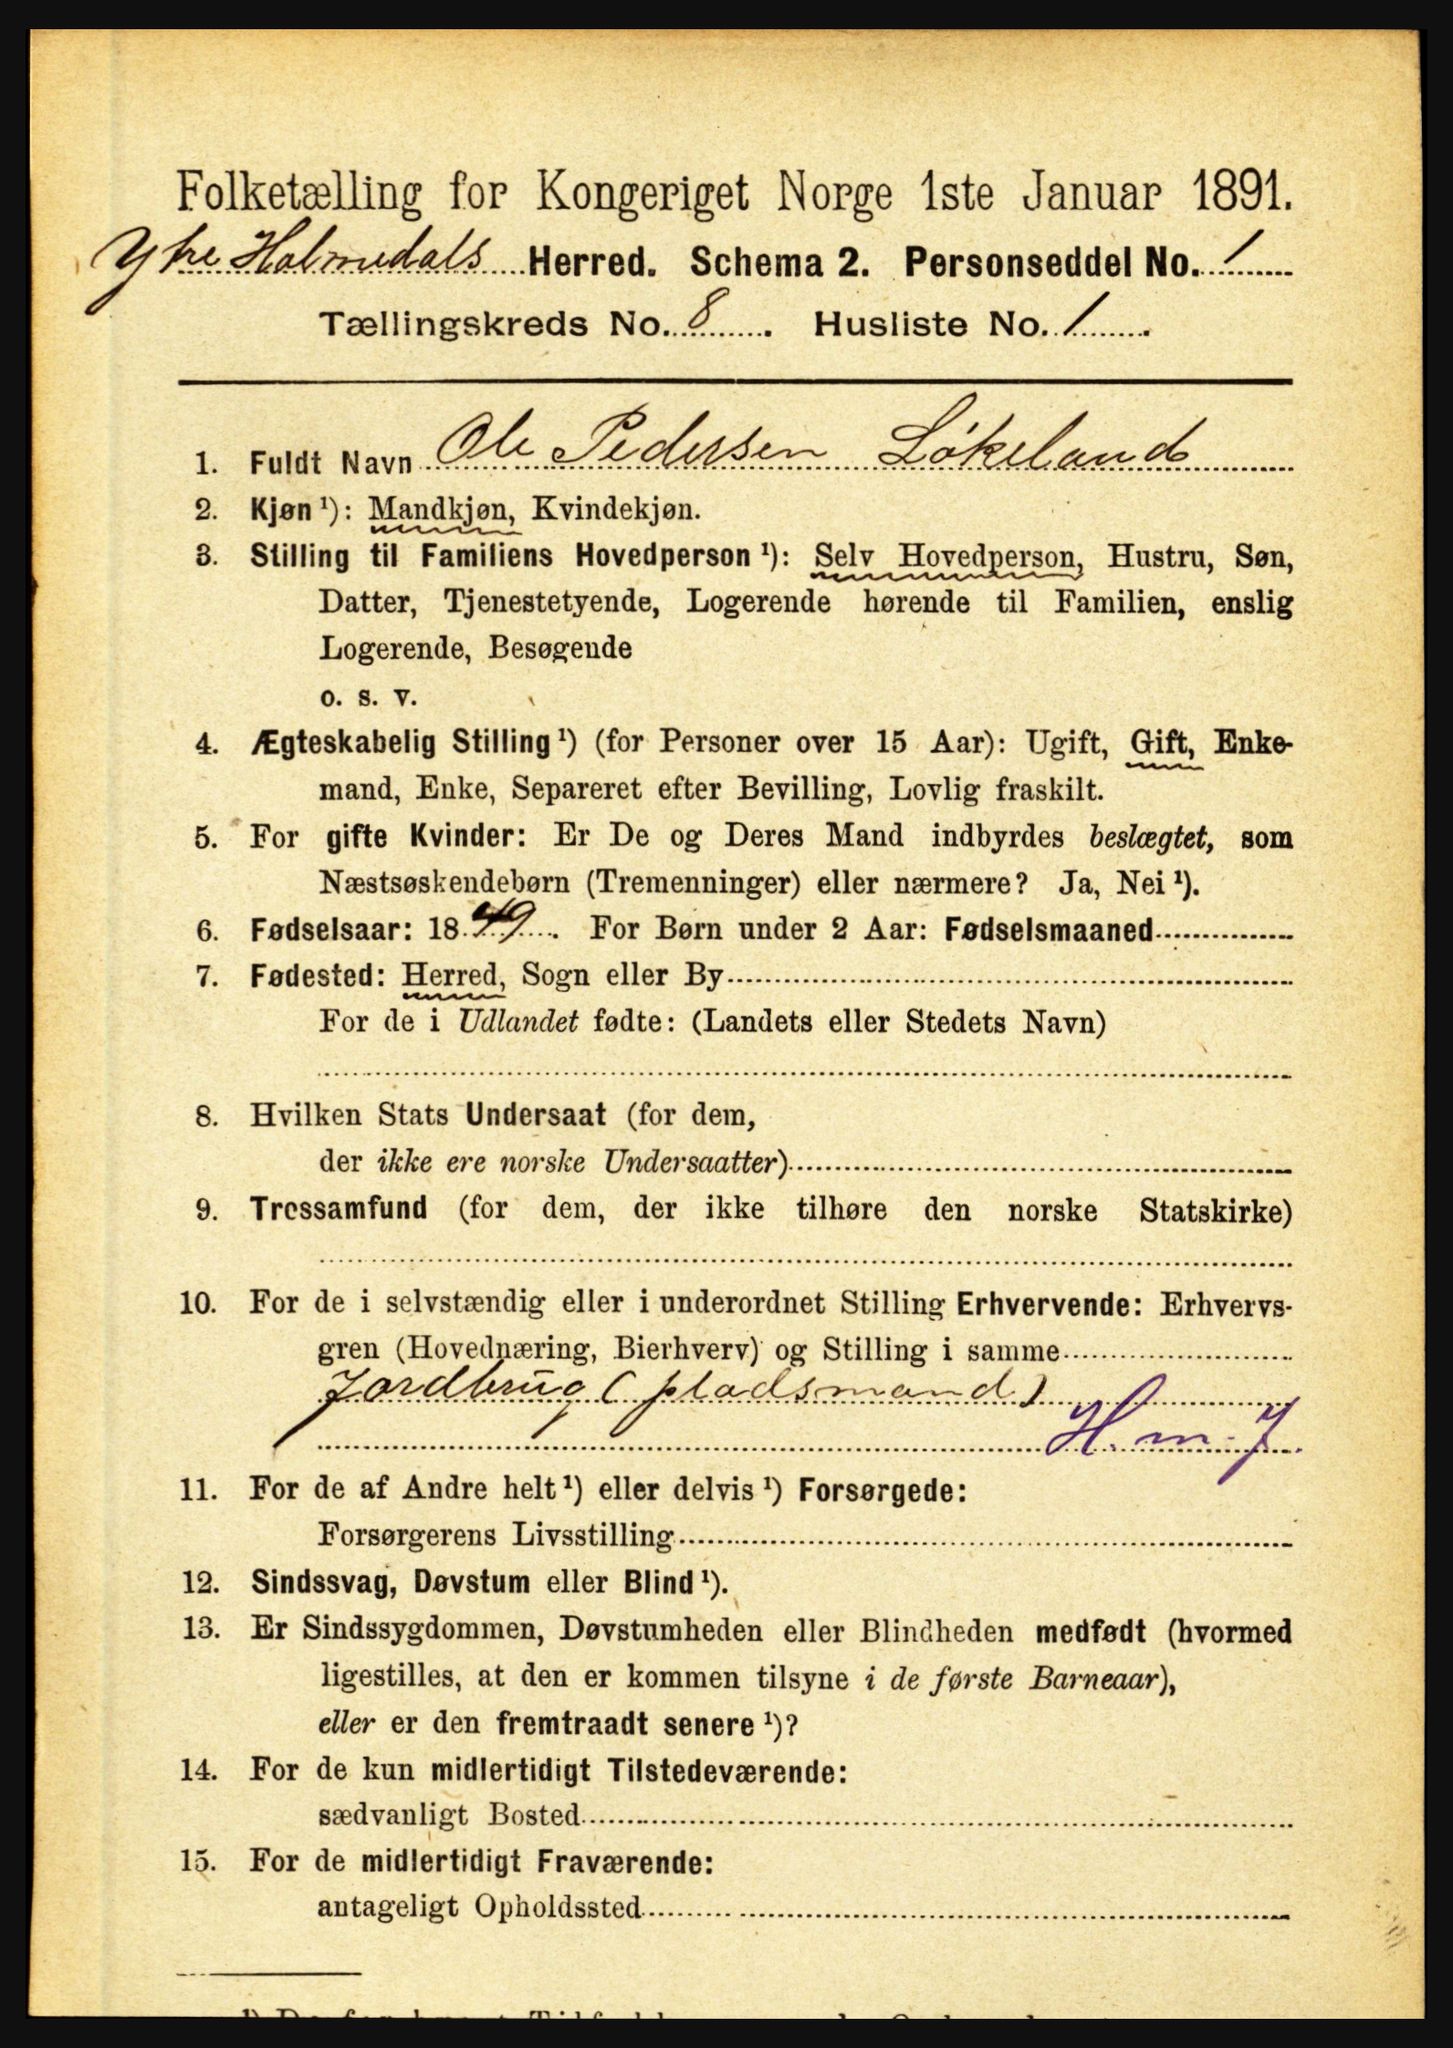 Folketælling for Kongeriget Norge 1ste Januar 1891.
Ytre Holmedals Herred. Schema 2. Personseddel No. 1
Tællingskreds No. 8. Husliste No. 1.
1. Fuldt Navn Ole Pedersen Løkeland
2. Kjøn ¹): Mandkjøn, Kvindekjøn.
3. Stilling til Familiens Hovedperson ¹): Selv Hovedperson, Hustru, Søn,
Datter, Tjenestetyende, Logerende hørende til Familien, enslig
Logerende, Besøgende
o. s. v.
4. Ægteskabelig Stilling ¹) (for Personer over 15 Aar): Ugift, Gift, Enke-
mand, Enke, Separeret efter Bevilling, Lovlig fraskilt.
5. For gifte Kvinder: Er De og Deres Mand indbyrdes beslægtet, som
Næstsøskendebørn (Tremenninger) eller nærmere? Ja, Nei ¹).
6. Fødselsaar: 1849. For Børn under 2 Aar: Fødselsmaaned
7. Fødested: Herred, Sogn eller By
For de i Udlandet fødte: (Landets eller Stedets Navn)
8. Hvilken Stats Undersaat (for dem,
der ikke ere norske Undersaatter)
9. Trossamfund (for dem, der ikke tilhøre den norske Statskirke)
10. For de i selvstændig eller i underordnet Stilling Erhvervende: Erhvervs-
gren (Hovednæring, Bierhverv) og Stilling i samme
Jordbrug (pladsmand)
H. m. J.
11. For de af Andre helt ¹) eller delvis ¹) Forsørgede:
Forsørgerens Livsstilling
12. Sindssvag, Døvstum eller Blind ¹).
13. Er Sindssygdommen, Døvstumheden eller Blindheden medfødt (hvormed
ligestilles, at den er kommen tilsyne i de første Barneaar),
eller er den fremtraadt senere ¹)?
14. For de kun midlertidigt Tilstedeværende:
sædvanligt Bosted
15. For de midlertidigt Fraværende:
antageligt Opholdssted